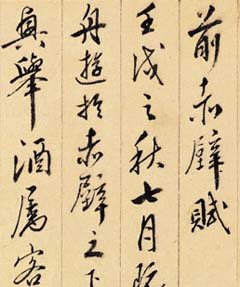 前赤壁賦
壬戌之秋七月既
舟遊於赤壁之下
興舉酒屬客